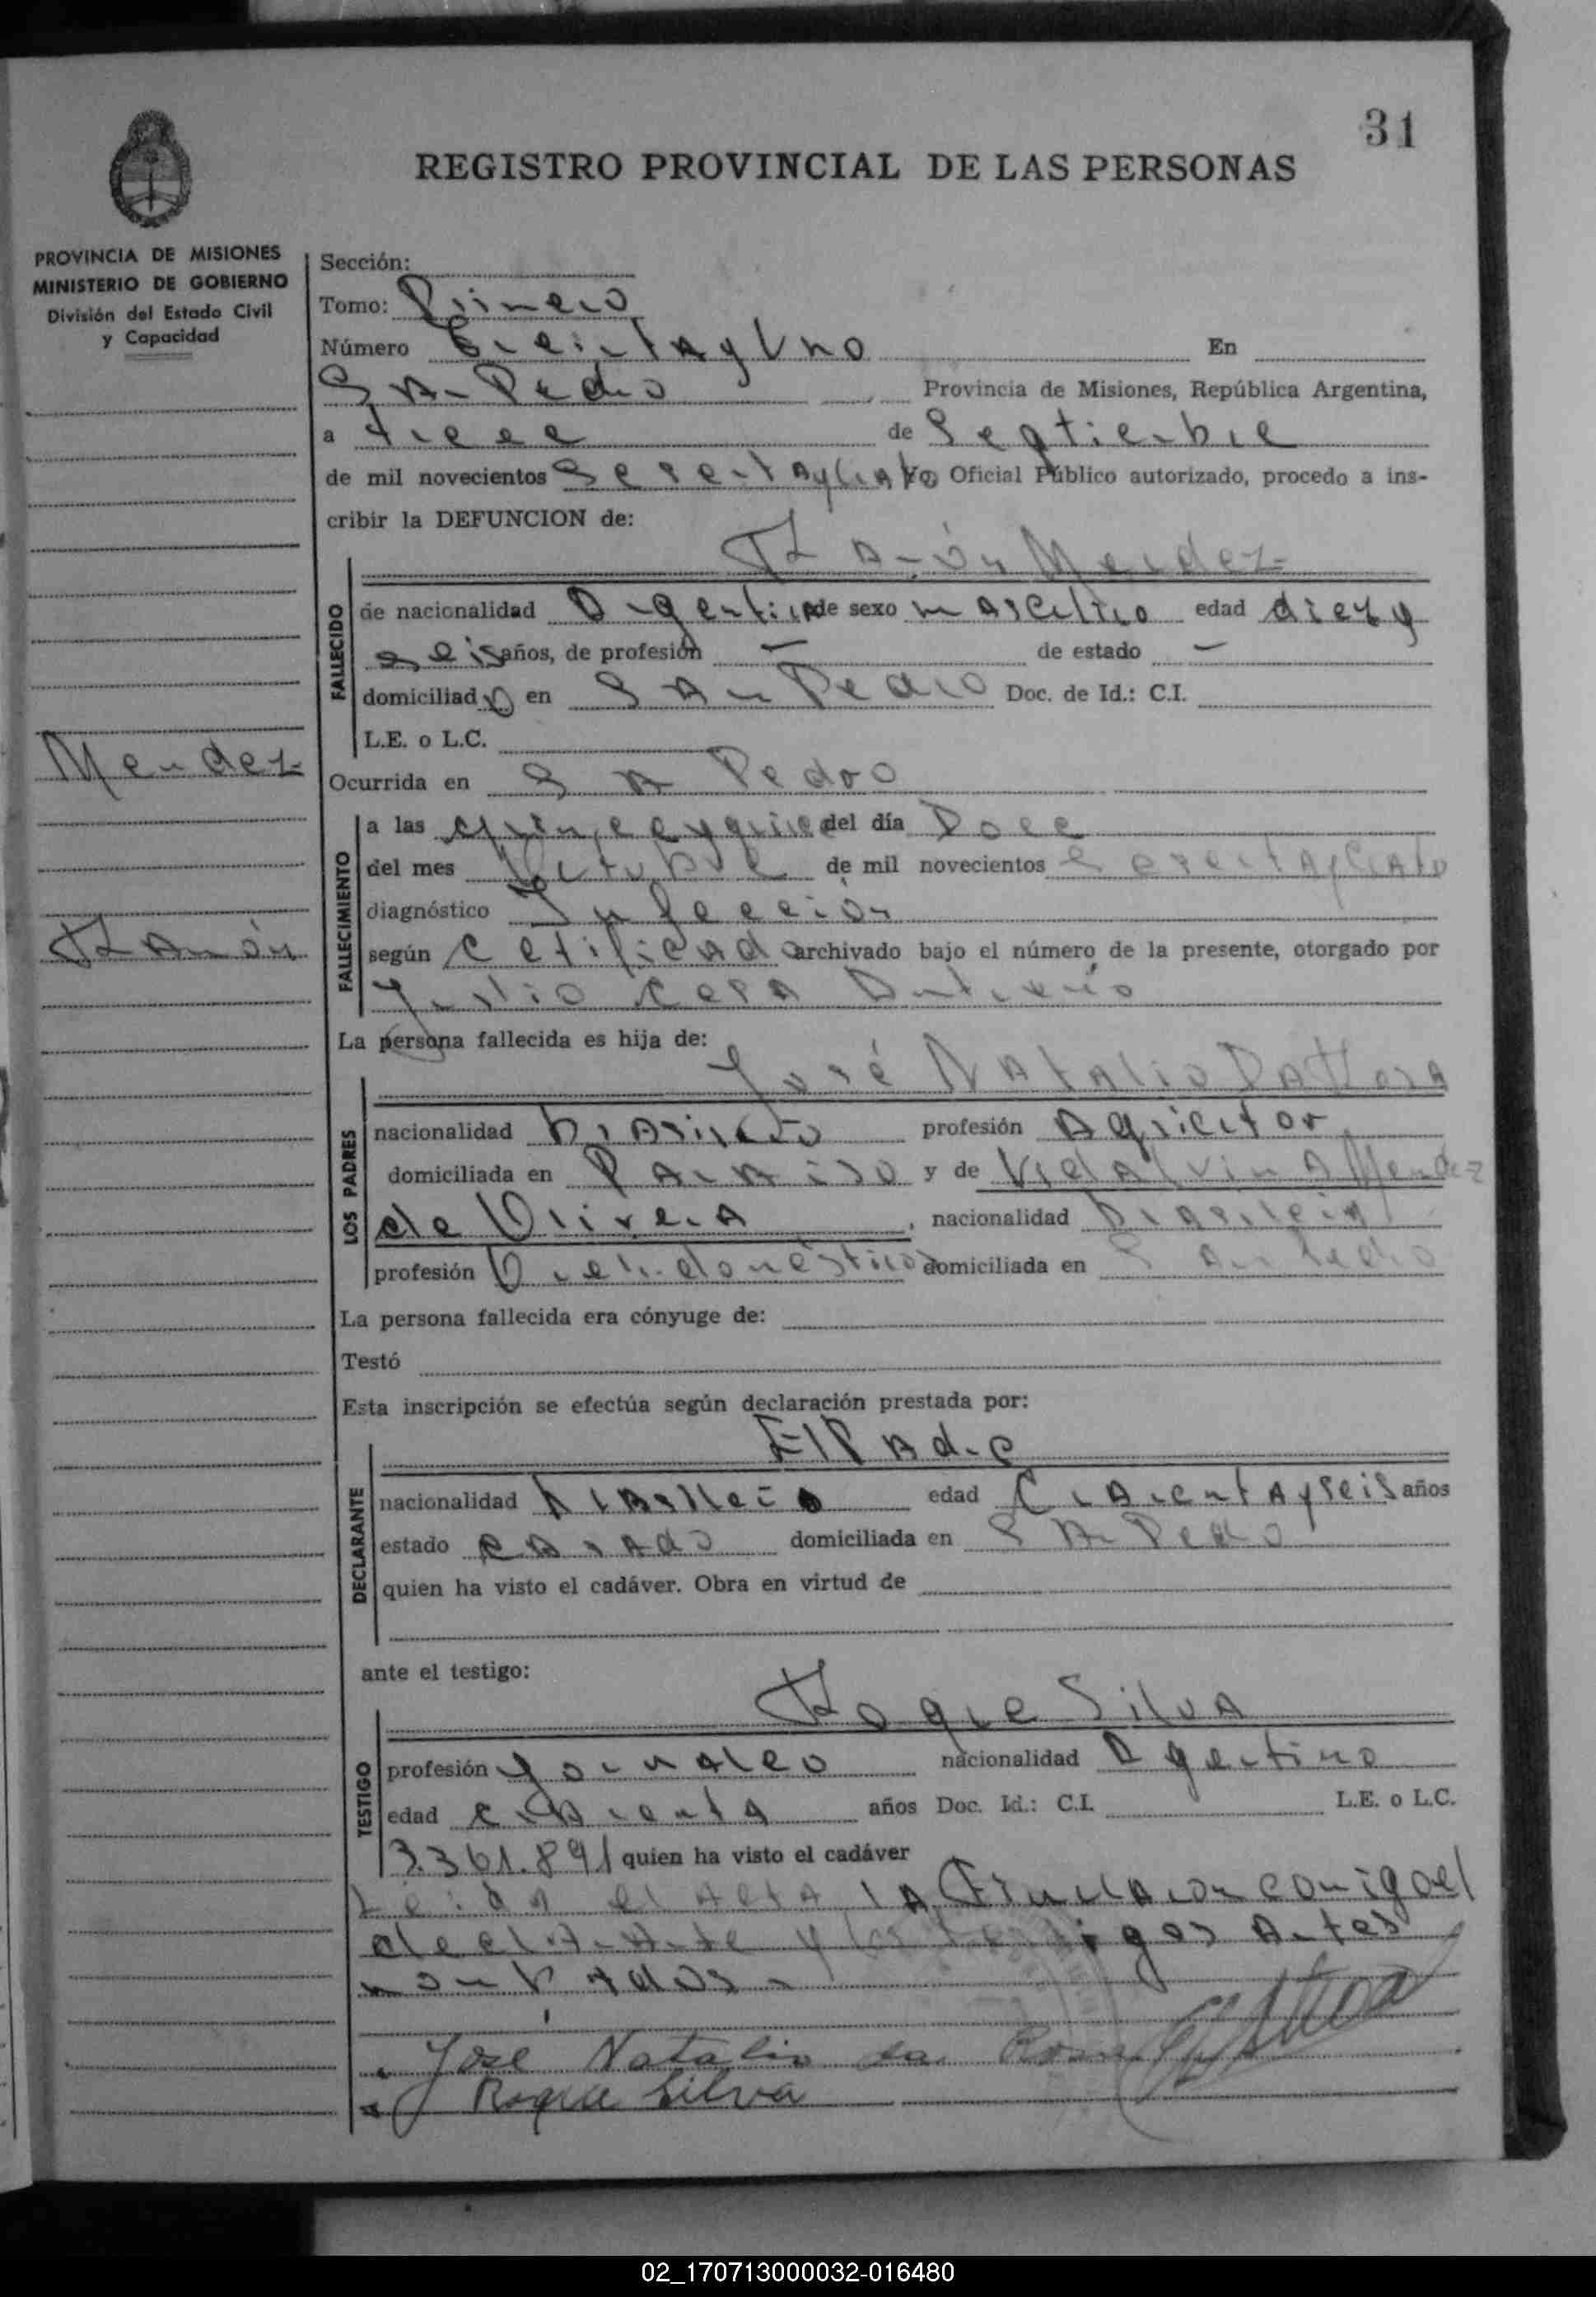 31
REGISTRO PROVINCIAL DE LAS PERSONAS
PROVINCIA DE MISIONES
MINISTERIO DE GOBIERNO
División del Estado Civil
y Capacidad
Sección:
Tomo: Primero
Número Treinta y Uno En
San Pedro Provincia de Misiones, República Argentina,
a trece de Septiembre
de mil novecientos Yo Oficial Público autorizado, procedo a ins-
cribir la DEFUNCION de:
Ramón Mendez
FALLECIDO
de nacionalidad Argentina de sexo masculino edad diez y
seis años, de profesión — de estado —
domiciliado en San Pedro Doc. de Id.: C.I.
L.E. o L.C.
Mendez
Ramón
Ocurrida en San Pedro
FALLECIMIENTO
a las quince y quince del día Doce
del mes Octubre de mil novecientos
diagnóstico Infección
según Cetificado archivado bajo el número de la presente, otorgado por
Julio
La persona fallecida es hija de:
José Natalio Da Rosa
LOS PADRES
nacionalidad brasilero profesión Agricultor
domiciliada en Paraiso y de Mendez
de Olivera, nacionalidad brasilera
profesión Queh. domésticos domiciliada en San Pedro
La persona fallecida era cónyuge de:
Testó
Esta inscripción se efectúa según declaración prestada por:
El Padre
DECLARANTE
nacionalidad brasilero edad Cuarenta y seis años
estado casado domiciliada en San Pedro
quien ha visto el cadáver. Obra en virtud de
ante el testigo:
Roque Silva
TESTIGO
profesión Jornalero nacionalidad Argentino
edad cuarenta años Doc. Id.: C.I. L.E. o L.C.
3.361.891 quien ha visto el cadáver
Leida el acta, la Firman conmigo el
declarante y los testigos Antes
nombrados
José Natalio da Rosa
Roque Silva
02_170713000032-016480